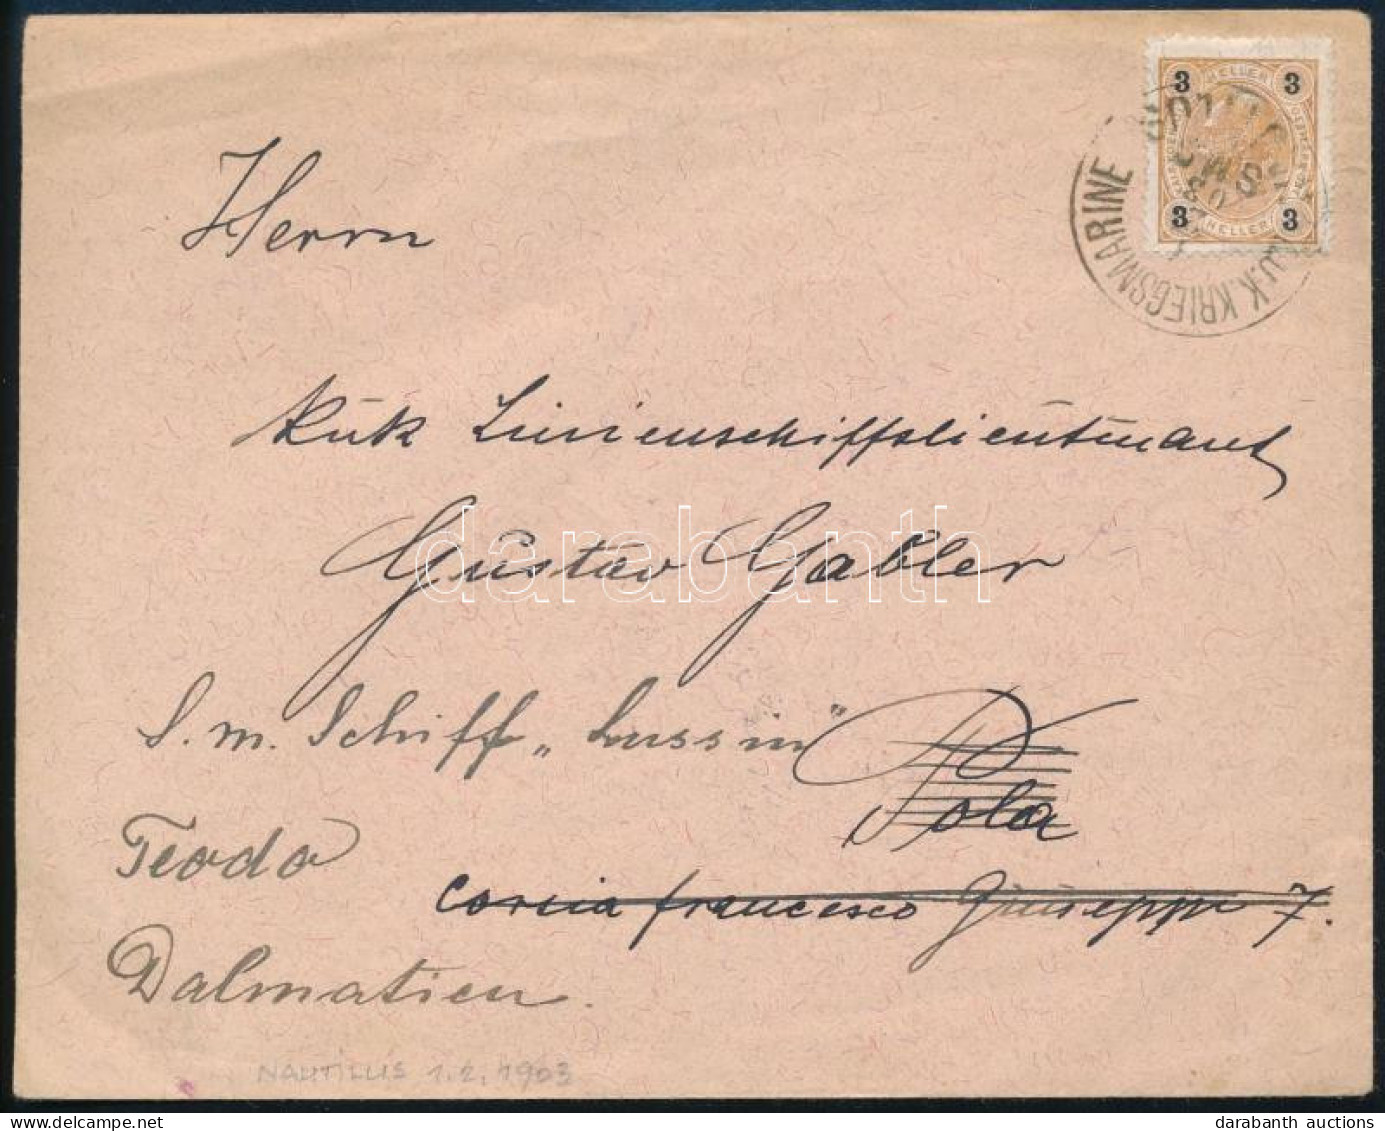 3 HELLER 3
3 HELLER 3
K.U.K. KRIEGSMARINE
S.M.S.
Herrn
kuk Linienschiffslieutenant
Gustav Gabler
darabanth
S. m. Schiff „Lussin"
Pola
Teodo
Corsia francesco Giuseppe 7.
Dalmatien.
NAUTILUS 1.2.1903
darabanth auctions